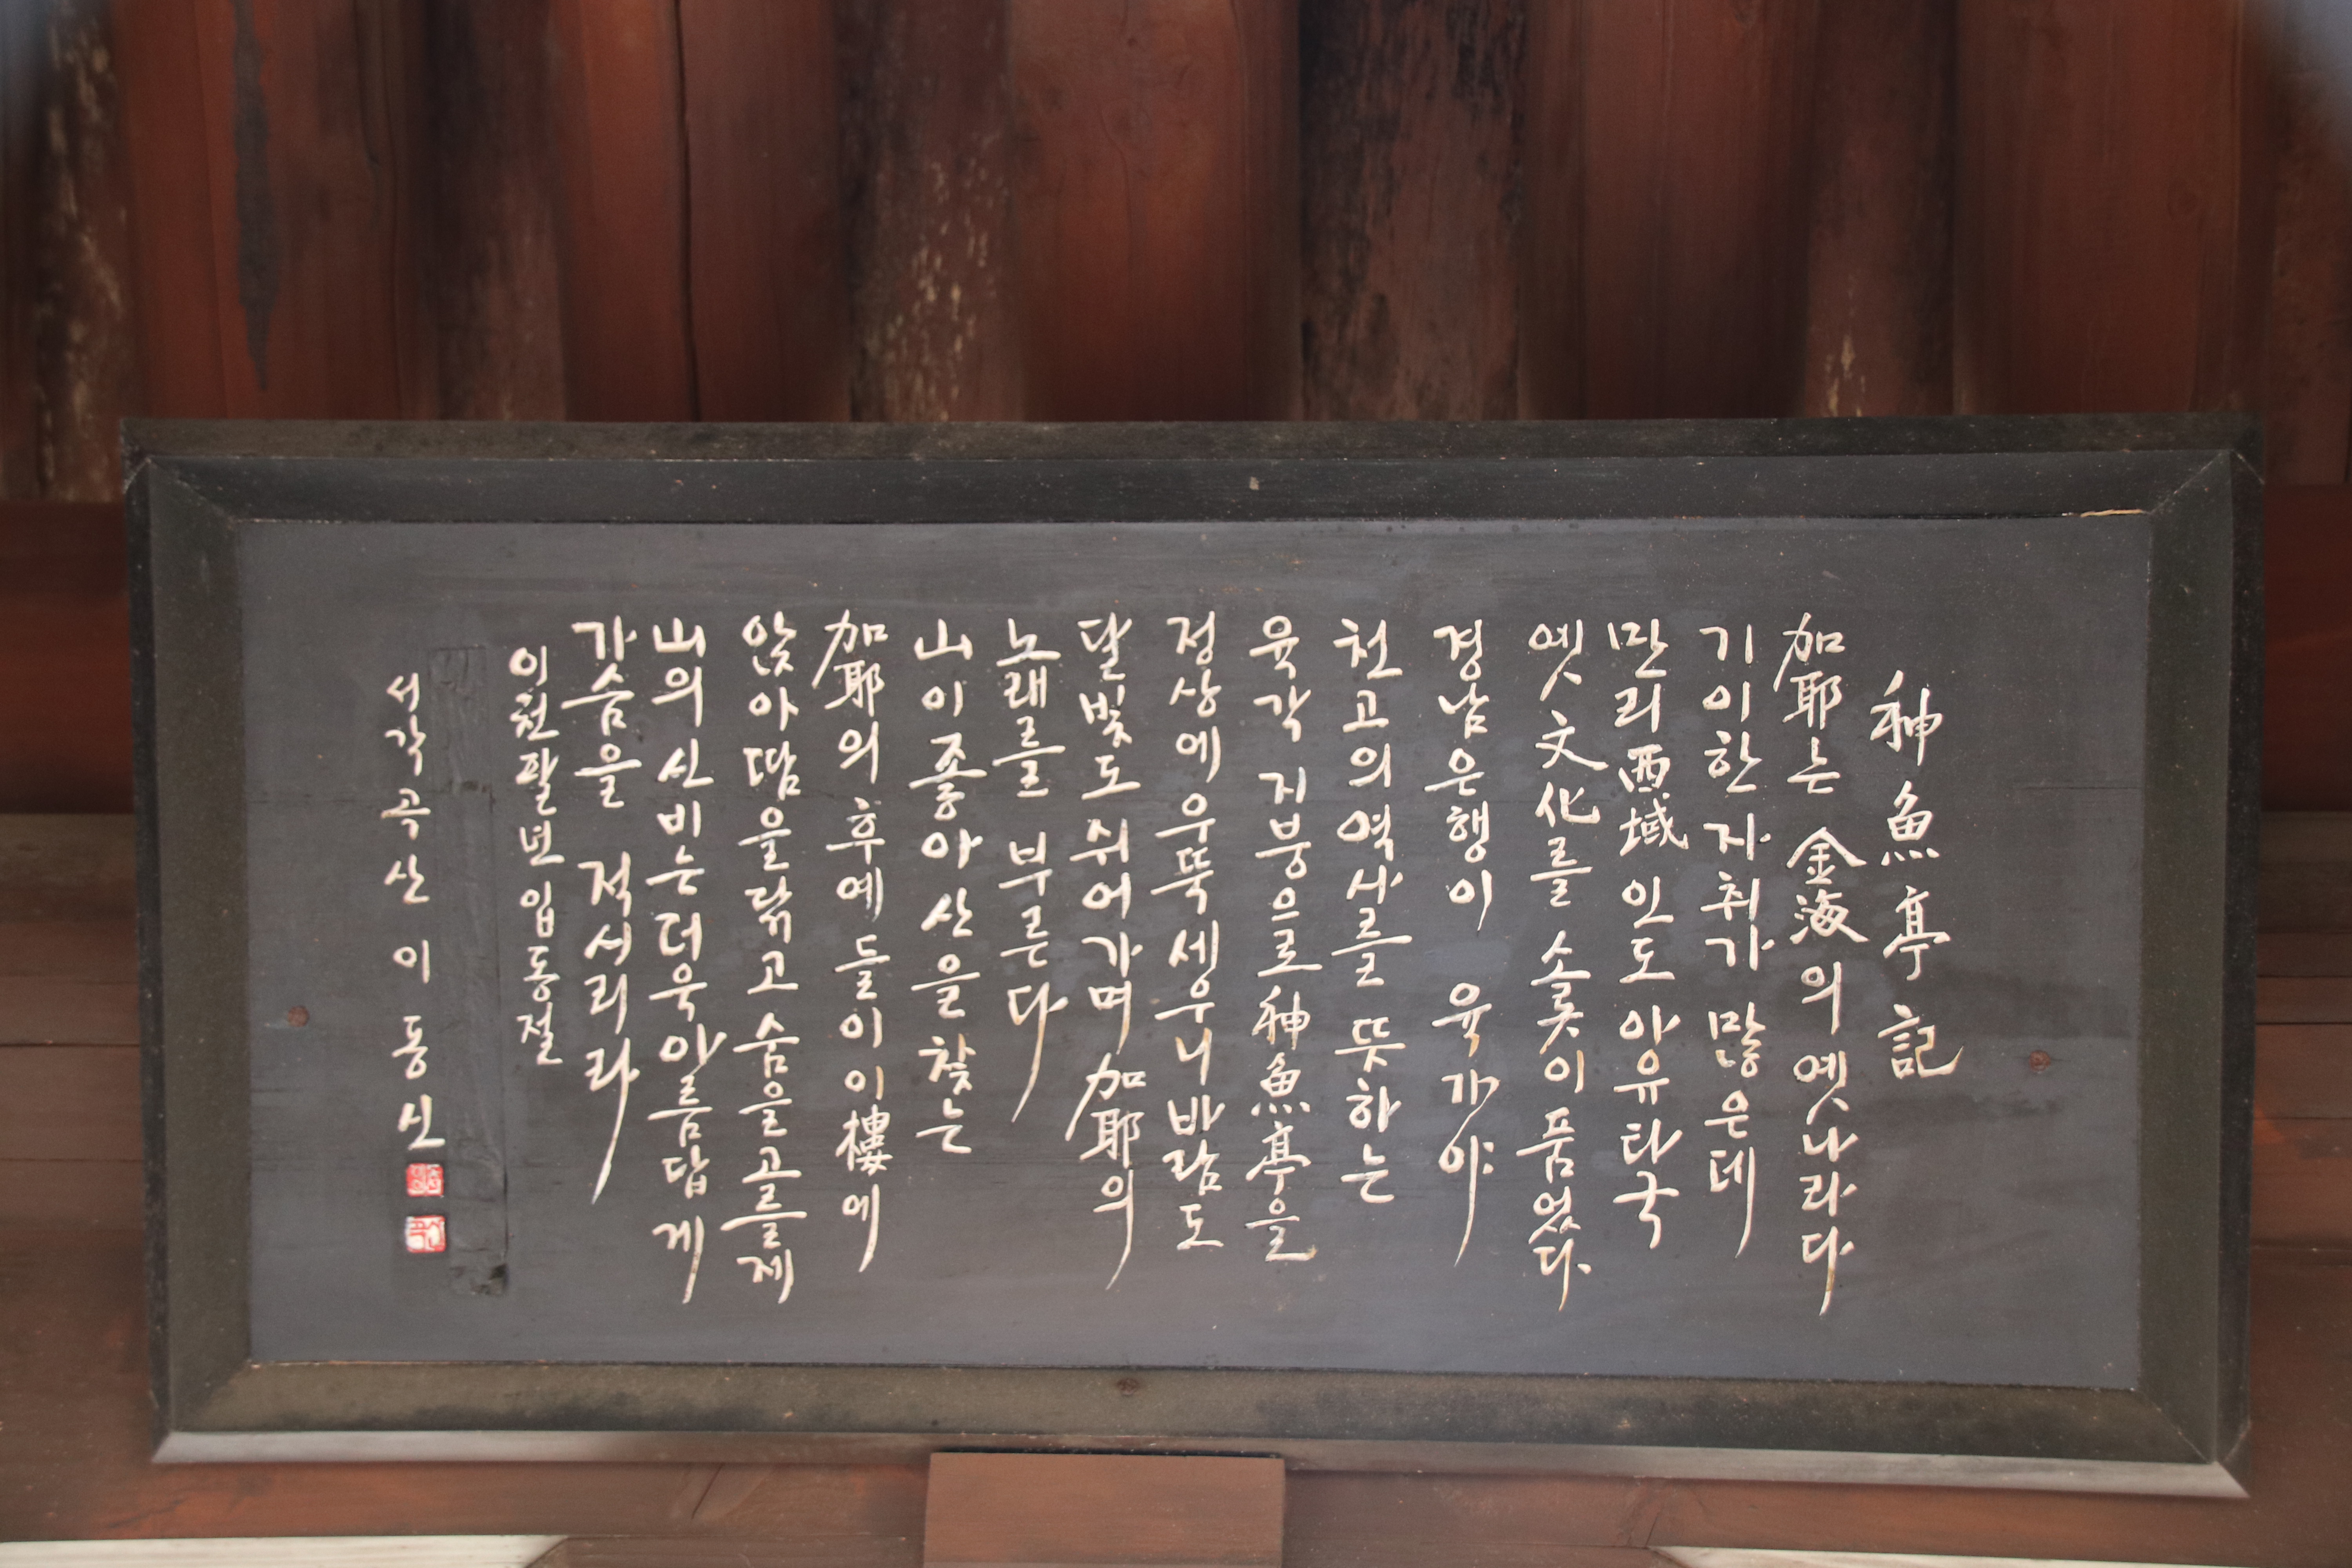 神魚亭記
加耶는 金海의 옛나라다
기이한 자취가 많은데
만리西域 인도 아유타국
옛文化를 소롯이 품었다.
경남은행이 육가야
천고의 역사를 뜻하는
육각 지붕으로 神魚亭을
정상에 우뚝 세우니 바람도
달빛도 쉬어가며 加耶의
노래를 부른다
山이 좋아 산을 찾는
加耶의 후예들이 이 樓에
앉아 땀을 닦고 숨을 고를제
山의 신비는 더욱 아름답게
가슴을 적시리라
이천팔년 입동절
서각 곡산 이동신